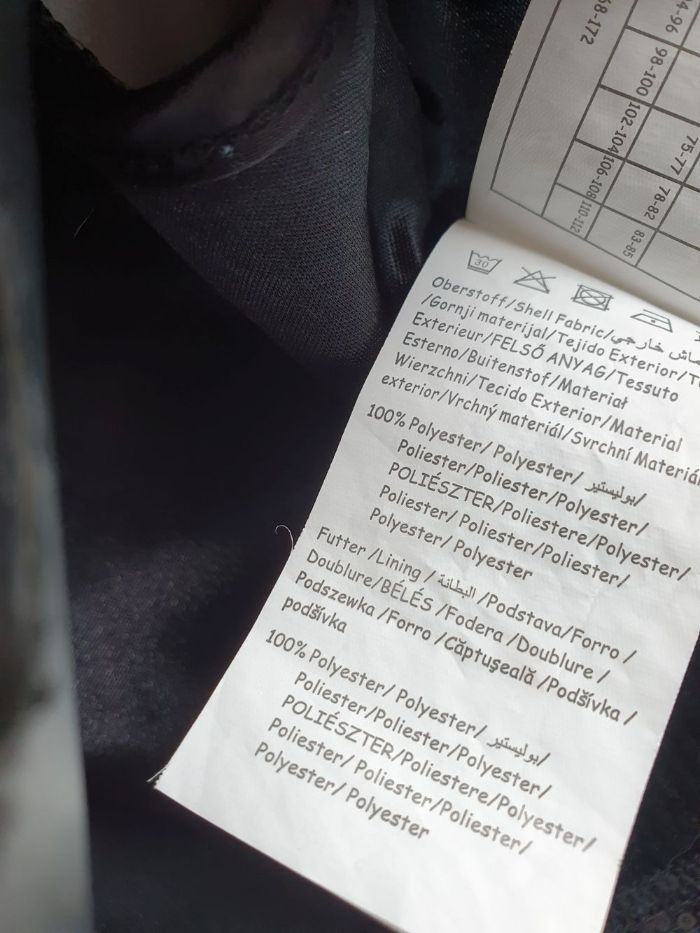 68-172
98-100
102-104
106-108
110-112
75-77
78-82
83-85
30
Oberstoff/Shell Fabric/
/Gornji materijal/Tejido Exterior/
Exterieur/FELSŐ ANYAG/Tessuto
Esterno/Buitenstof/Materiał
Wierzchni/Tecido Exterior/Material
exterior/Vrchný materiál/Svrchní
100% Polyester/ Polyester/ بوليستير/
Poliester/Poliester/Polyester/
POLIÉSZTER/Poliestere/Polyester/
Poliester/ Poliester/Poliester/
Polyester/ Polyester
Futter /Lining / البطانة /Podstava/Forro /
Doublure/BÉLÉS /Fodera /Doublure /
Podszewka /Forro /Căptuşeală /Podšívka /
podšívka
100% Polyester/ Polyester/ بوليستير/
Poliester/Poliester/Polyester/
POLIÉSZTER/Poliestere/Polyester/
Poliester/ Poliester/Poliester/
Polyester/ Polyester